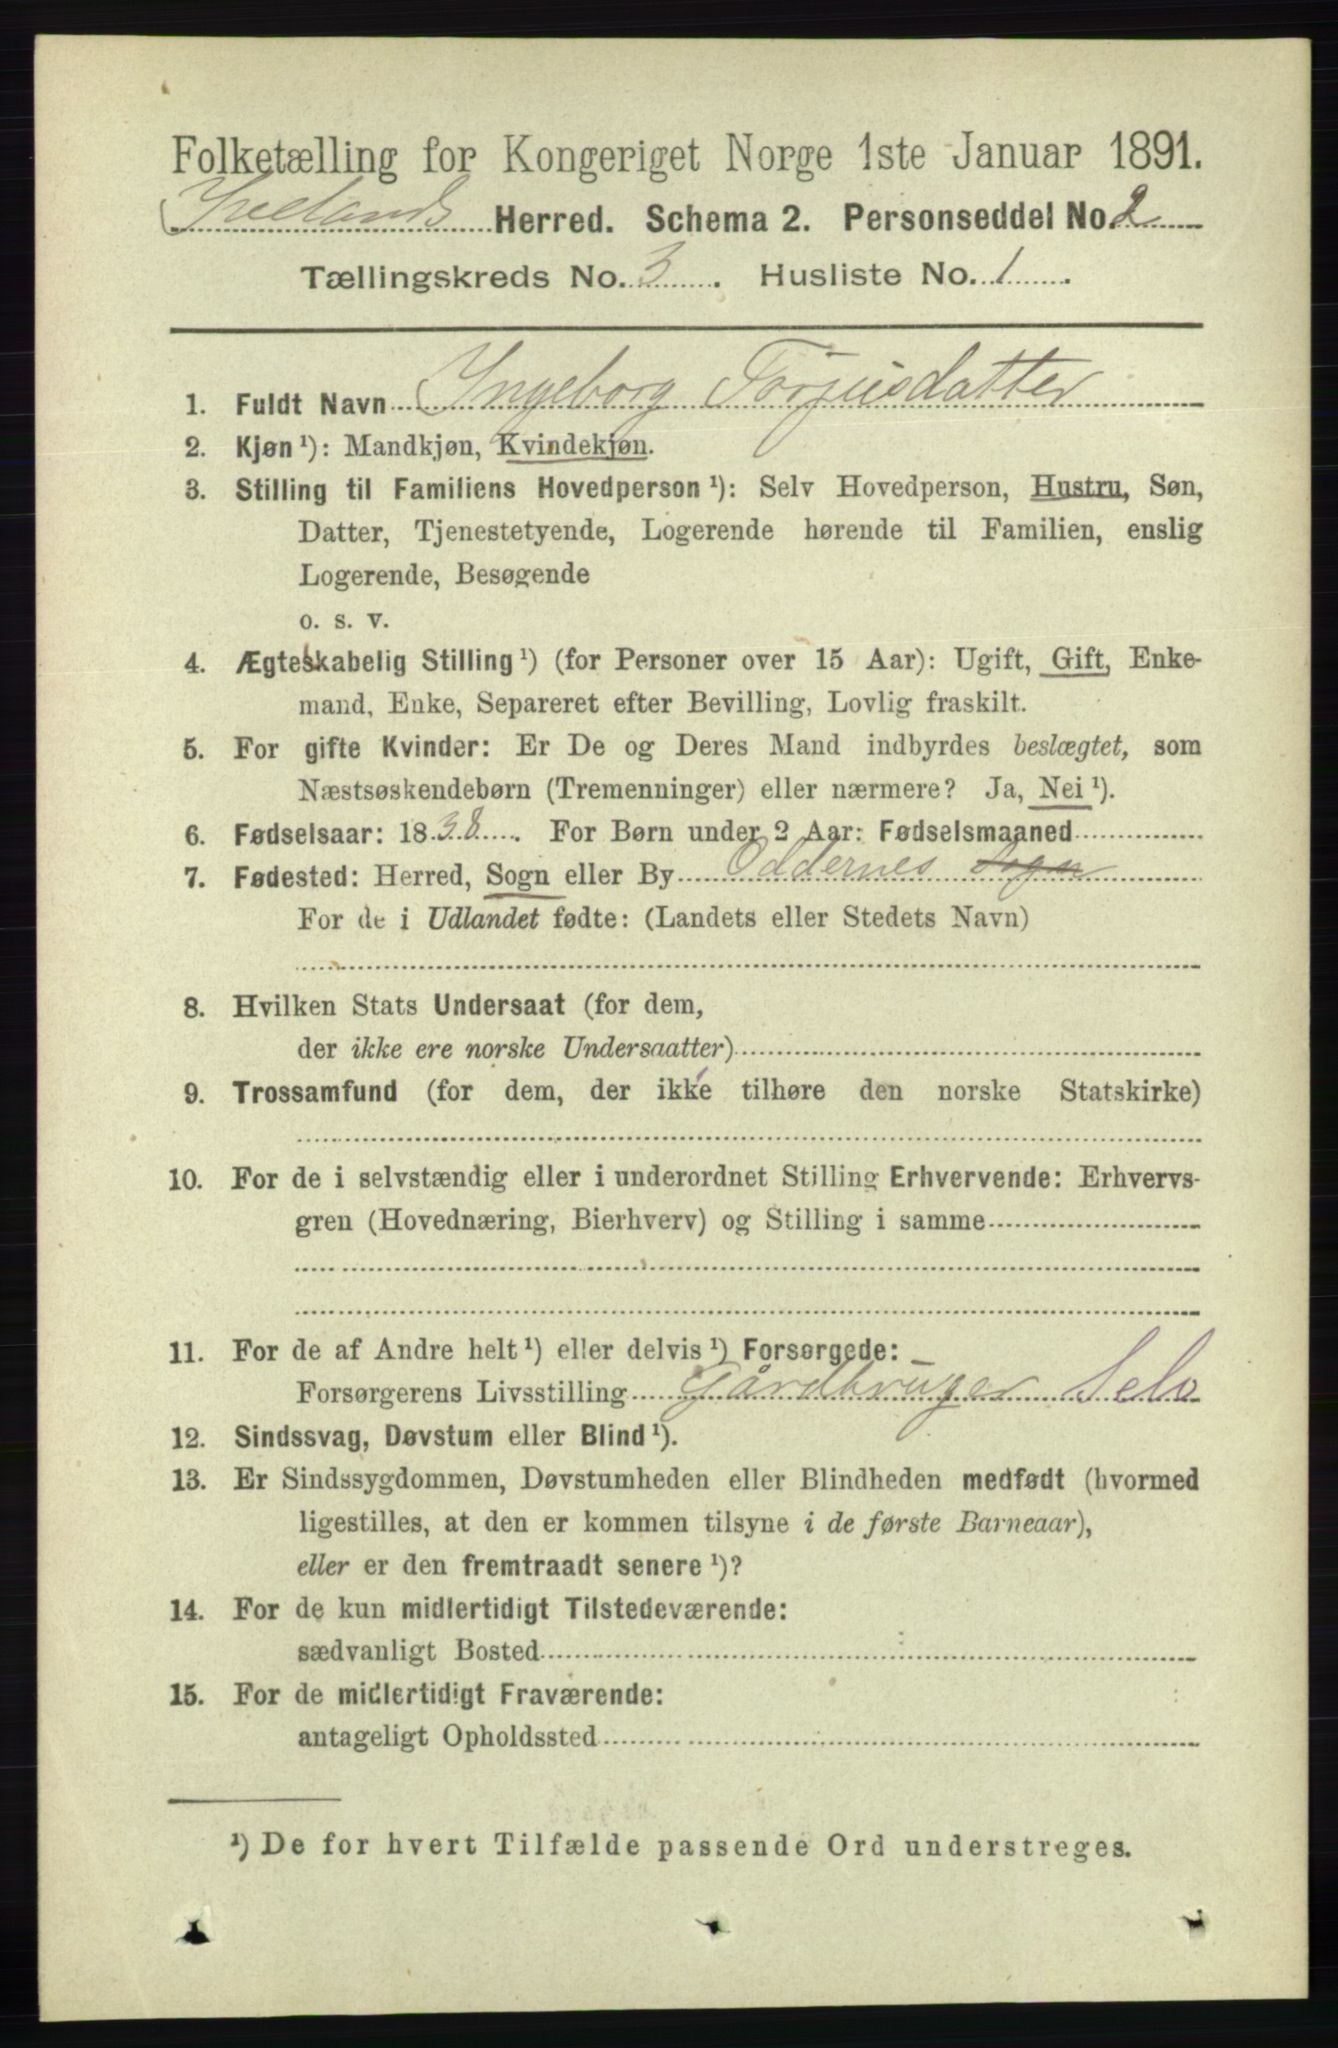 Folketælling for Kongeriget Norge 1ste Januar 1891.
Ivelands Herred. Schema 2. Personseddel No. 2
Tællingskreds No. 3. Husliste No. 1.
1. Fuldt Navn Ingeborg Torjusdatter
2. Kjøn ¹): Mandkjøn, Kvindekjøn.
3. Stilling til Familiens Hovedperson ¹): Selv Hovedperson, Hustru, Søn,
Datter, Tjenestetyende, Logerende hørende til Familien, enslig
Logerende, Besøgende
o. s. v.
4. Ægteskabelig Stilling ¹) (for Personer over 15 Aar): Ugift, Gift, Enke-
mand, Enke, Separeret efter Bevilling, Lovlig fraskilt.
5. For gifte Kvinder: Er De og Deres Mand indbyrdes beslægtet, som
Næstsøskendebørn (Tremenninger) eller nærmere? Ja, Nei ¹).
6. Fødselsaar: 1838. For Børn under 2 Aar: Fødselsmaaned
7. Fødested: Herred, Sogn eller By Oddernes Sogn
For de i Udlandet fødte: (Landets eller Stedets Navn)
8. Hvilken Stats Undersaat (for dem,
der ikke ere norske Undersaatter)
9. Trossamfund (for dem, der ikke tilhøre den norske Statskirke)
10. For de i selvstændig eller i underordnet Stilling Erhvervende: Erhvervs-
gren (Hovednæring, Bierhverv) og Stilling i samme
11. For de af Andre helt ¹) eller delvis ¹) Forsørgede:
Forsørgerens Livsstilling Gårdbruger Selv
12. Sindssvag, Døvstum eller Blind ¹).
13. Er Sindssygdommen, Døvstumheden eller Blindheden medfødt (hvormed
ligestilles, at den er kommen tilsyne i de første Barneaar),
eller er den fremtraadt senere ¹)?
14. For de kun midlertidigt Tilstedeværende:
sædvanligt Bosted
15. For de midlertidigt Fraværende:
antageligt Opholdssted
¹) De for hvert Tilfælde passende Ord understreges.